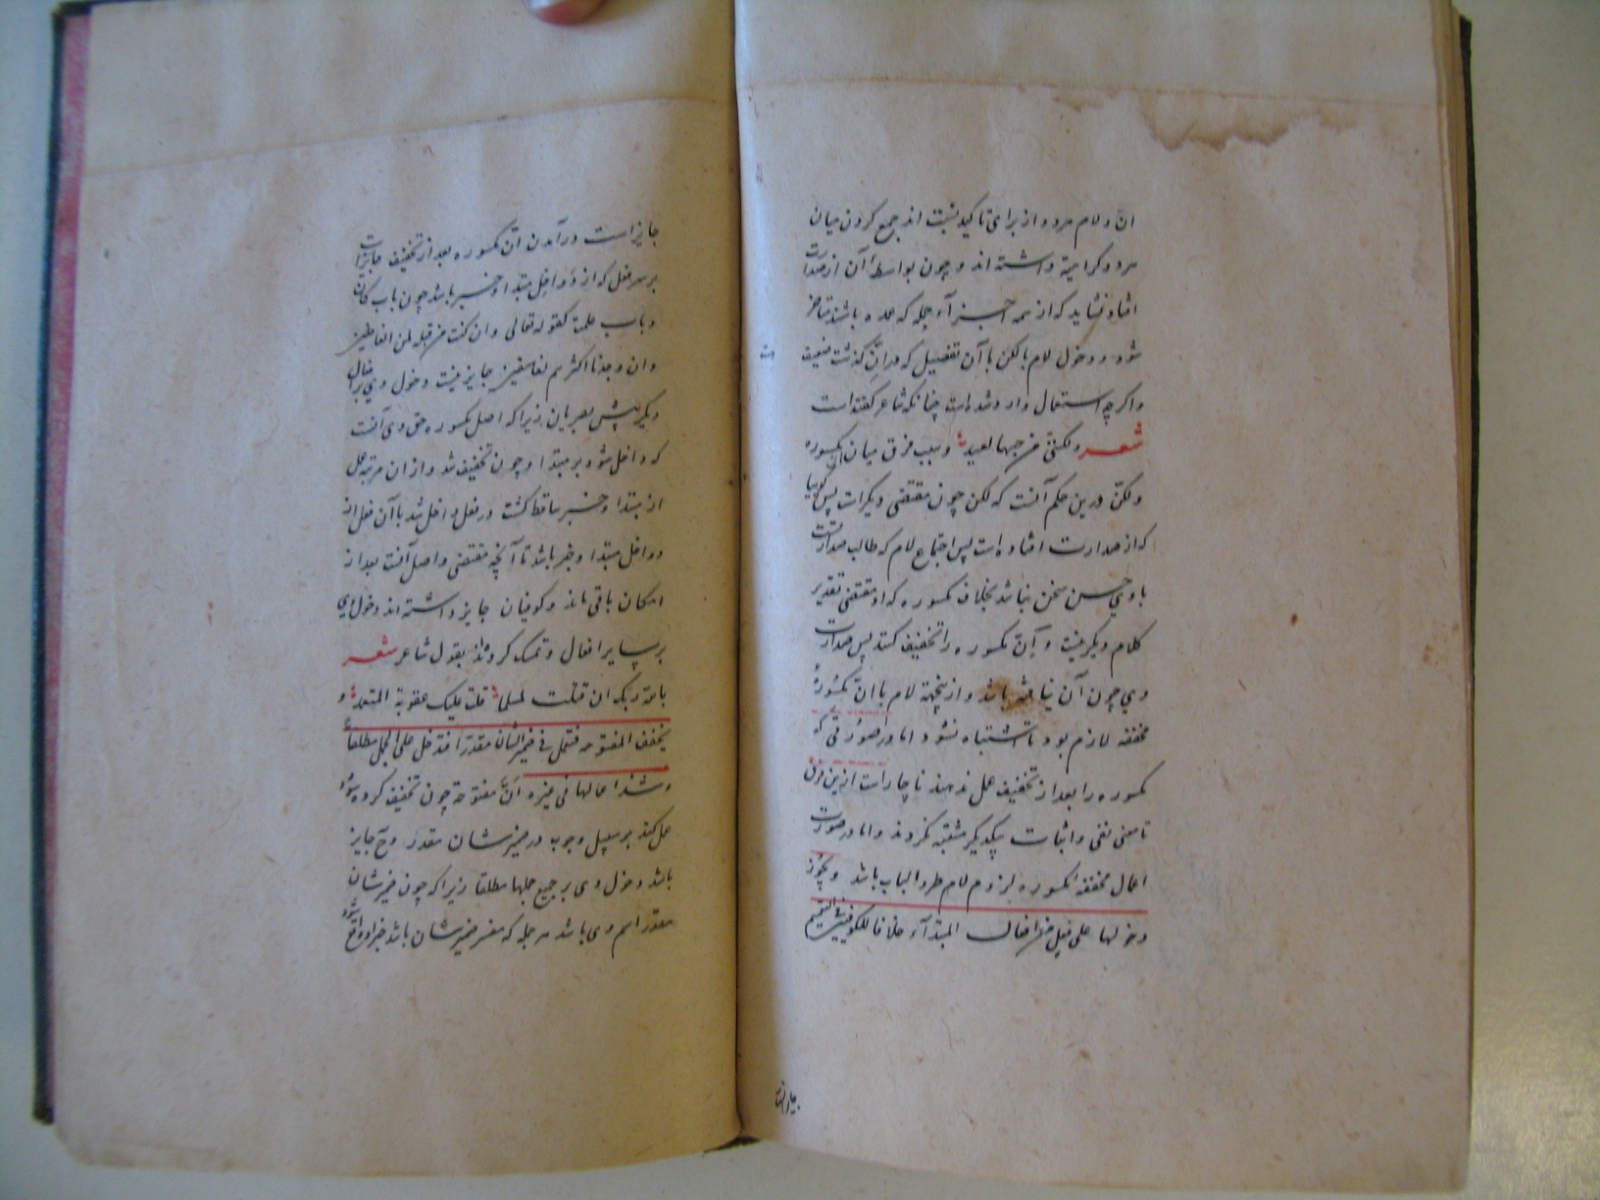 ان ولام هر دو از برای تاکید نسبت اند جمع کردن میان
هر دو کراهیة داشته اند و چون بواسطه آن از صدارت
افتاد نشاید که از همه اجزآء جمله که عمده باشند متاخر
شود و دخول لام بالکن با آن تفصیل که در ان گذشت ضعیف
واگرچه استعمال وارد شده است چنانکه شاعر گفته است
شعر ولکننی من حبها لعمید و سبب فرق میان ان مکسوره
ولکن درین حکم آنست که لکن چون مقتضی دیگر است پس گویا
که از صدارت افتاده است پس اجتماع لام که طالب صدارتست
با وی حسن سخن نباشد بخلاف مکسوره که او مقتضی تقدیر
کلام دیگر نیست و اِنّ مکسوره را تخفیف کنند پس صدارت
وی چون آن نیا باشد و از ینجهة لام با ان مکسوره
مخففه لازم بود تا اشتباه نشود اما در صورتی که
مکسوره را بعد از تخفیف عمل ندهند ناچار است ازین فرق
تا معنی نفی و اثبات بیکدیگر مشتبه نگردند واما در صورت
اعمال مخففه مکسوره لزوم لام طردا للباب باشد ویجوز
دخولها علی فعل من افعال المبتدآء خلافا للکوفیین فی التعمیم
جایز است درآمدن ان مکسوره بعد از تخفیف
بر هر فعل که از دواخل مبتدا و خبر باشد چون باب کان
و باب علمت کقوله تعالی وان کنت من قبله لمن الغافلین
وان وجدنا اکثرهم لفاسقین جایز نیست دخول وی بر افعال
دیگر پیش بصریان زیرا که اصل مکسوره حق وی آنست
که داخل شود بر مبتدا و چون تخفیف شد و از ان مرتبه عمل
از مبتدا و خبر ساقط گشت در فعل داخل شد با آن فعل از
دواخل مبتدا و خبر باشد تا آنچه مقتضی و اصل آنست بعد از
امکان باقی ماند و کوفیان جایز داشته اند دخول وی
بر سایر افعال و تمسک کردند بقول شاعر شعر
بالله ربک ان قتلت لمسلما علیک عقوبة المتعمد و
یخفف المفتوحه فتعمل فی ضمیر الشان مقدرا فتدخل علی الجمل مطلقا
وشذ اعمالها فی غیره انّ مفتوحة چون تخفیف کرده شود
عمل کند بر سبیل وجوب در ضمیر شان مقدر وح جایز
باشد دخول وی بر جمیع جملها مطلقا زیرا که چون ضمیر شان
مقدر اسم وی باشد هر جمله که مفسر ضمیر شان باشد خبر او واقع شود
جایز است